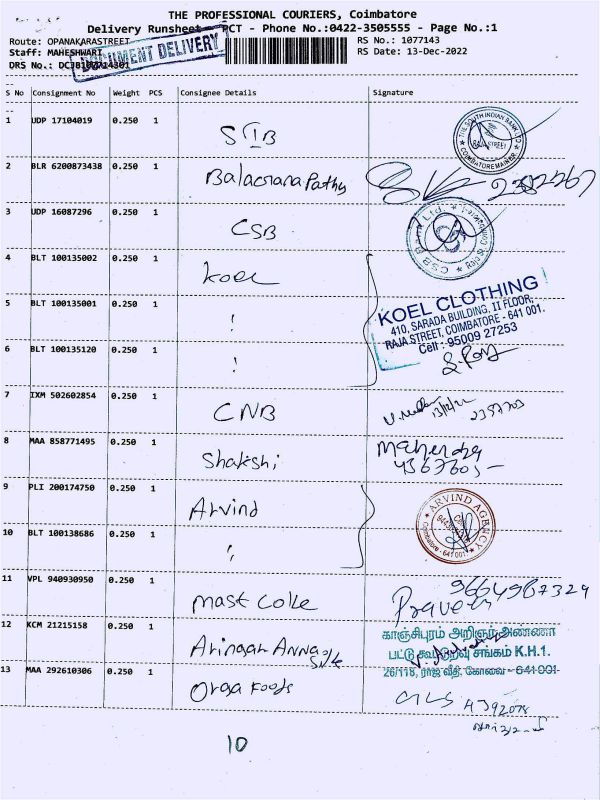 THE PROFESSIONAL COURIERS, Coimbatore
Delivery Runsheet - PCT - Phone No.:0422-3505555 - Page No.:1
Route: OPANAKARASTREET
RS No.: 1077143
Staff: MAHESHWARI
RS Date: 13-Dec-2022
DRS No.:
DOCUMENT DELIVERY
S No Consignment No Weight PCS Consignee Details Signature
1 UDP 17104019 0.250 1 SIB
THE SOUTH INDIAN BANK LTD.
RAJA STREET
2 BLR 6200873438 0.250 1
3 UDP 16087296 0.250 1 CSB
CSB Bank Ltd.
4 BLT 100135002 0.250 1 Koel
5 BLT 100135001 0.250 1 "
KOEL CLOTHING
410, SARADA BUILDING, II FLOOR,
RAJA STREET, COIMBATORE - 641 001.
Cell : 95009 27253
6 BLT 100135120 0.250 1 "
7 IXM 502602854 0.250 1 CNB
13/12/22
8 MAA 858771495 0.250 1 Shakshi
Mahendra
9 PLI 200174750 0.250 1 Arvind
ARVIND AGENCY
Coimbatore - 641 001
10 BLT 100138686 0.250 1 "
11 VPL 940930950 0.250 1 mast Coke
9664987329
Praveen
12 KCM 21215158 0.250 1 Aringar Anna Silk
காஞ்சிபுரம் அறிஞர் அண்ணா
பட்டு கூட்டுறவு சங்கம் K.H.1.
26/118, ராஜ வீதி, கோவை - 641 001.
13 MAA 292610306 0.250 1 Orga Foods
10